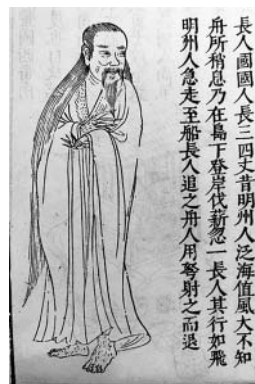 長人國國人長三四丈昔明州人泛海值風大不知
舟所稍息乃在島下登岸伐薪忽一長人其行如飛
明州人急走至船長人追之舟人用弩射之而退